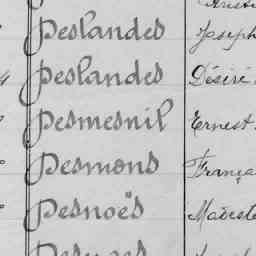 Deslandes Joseph
Deslandes Désiré
Desmesnil Ernest
Desmons
Desnoës Modeste